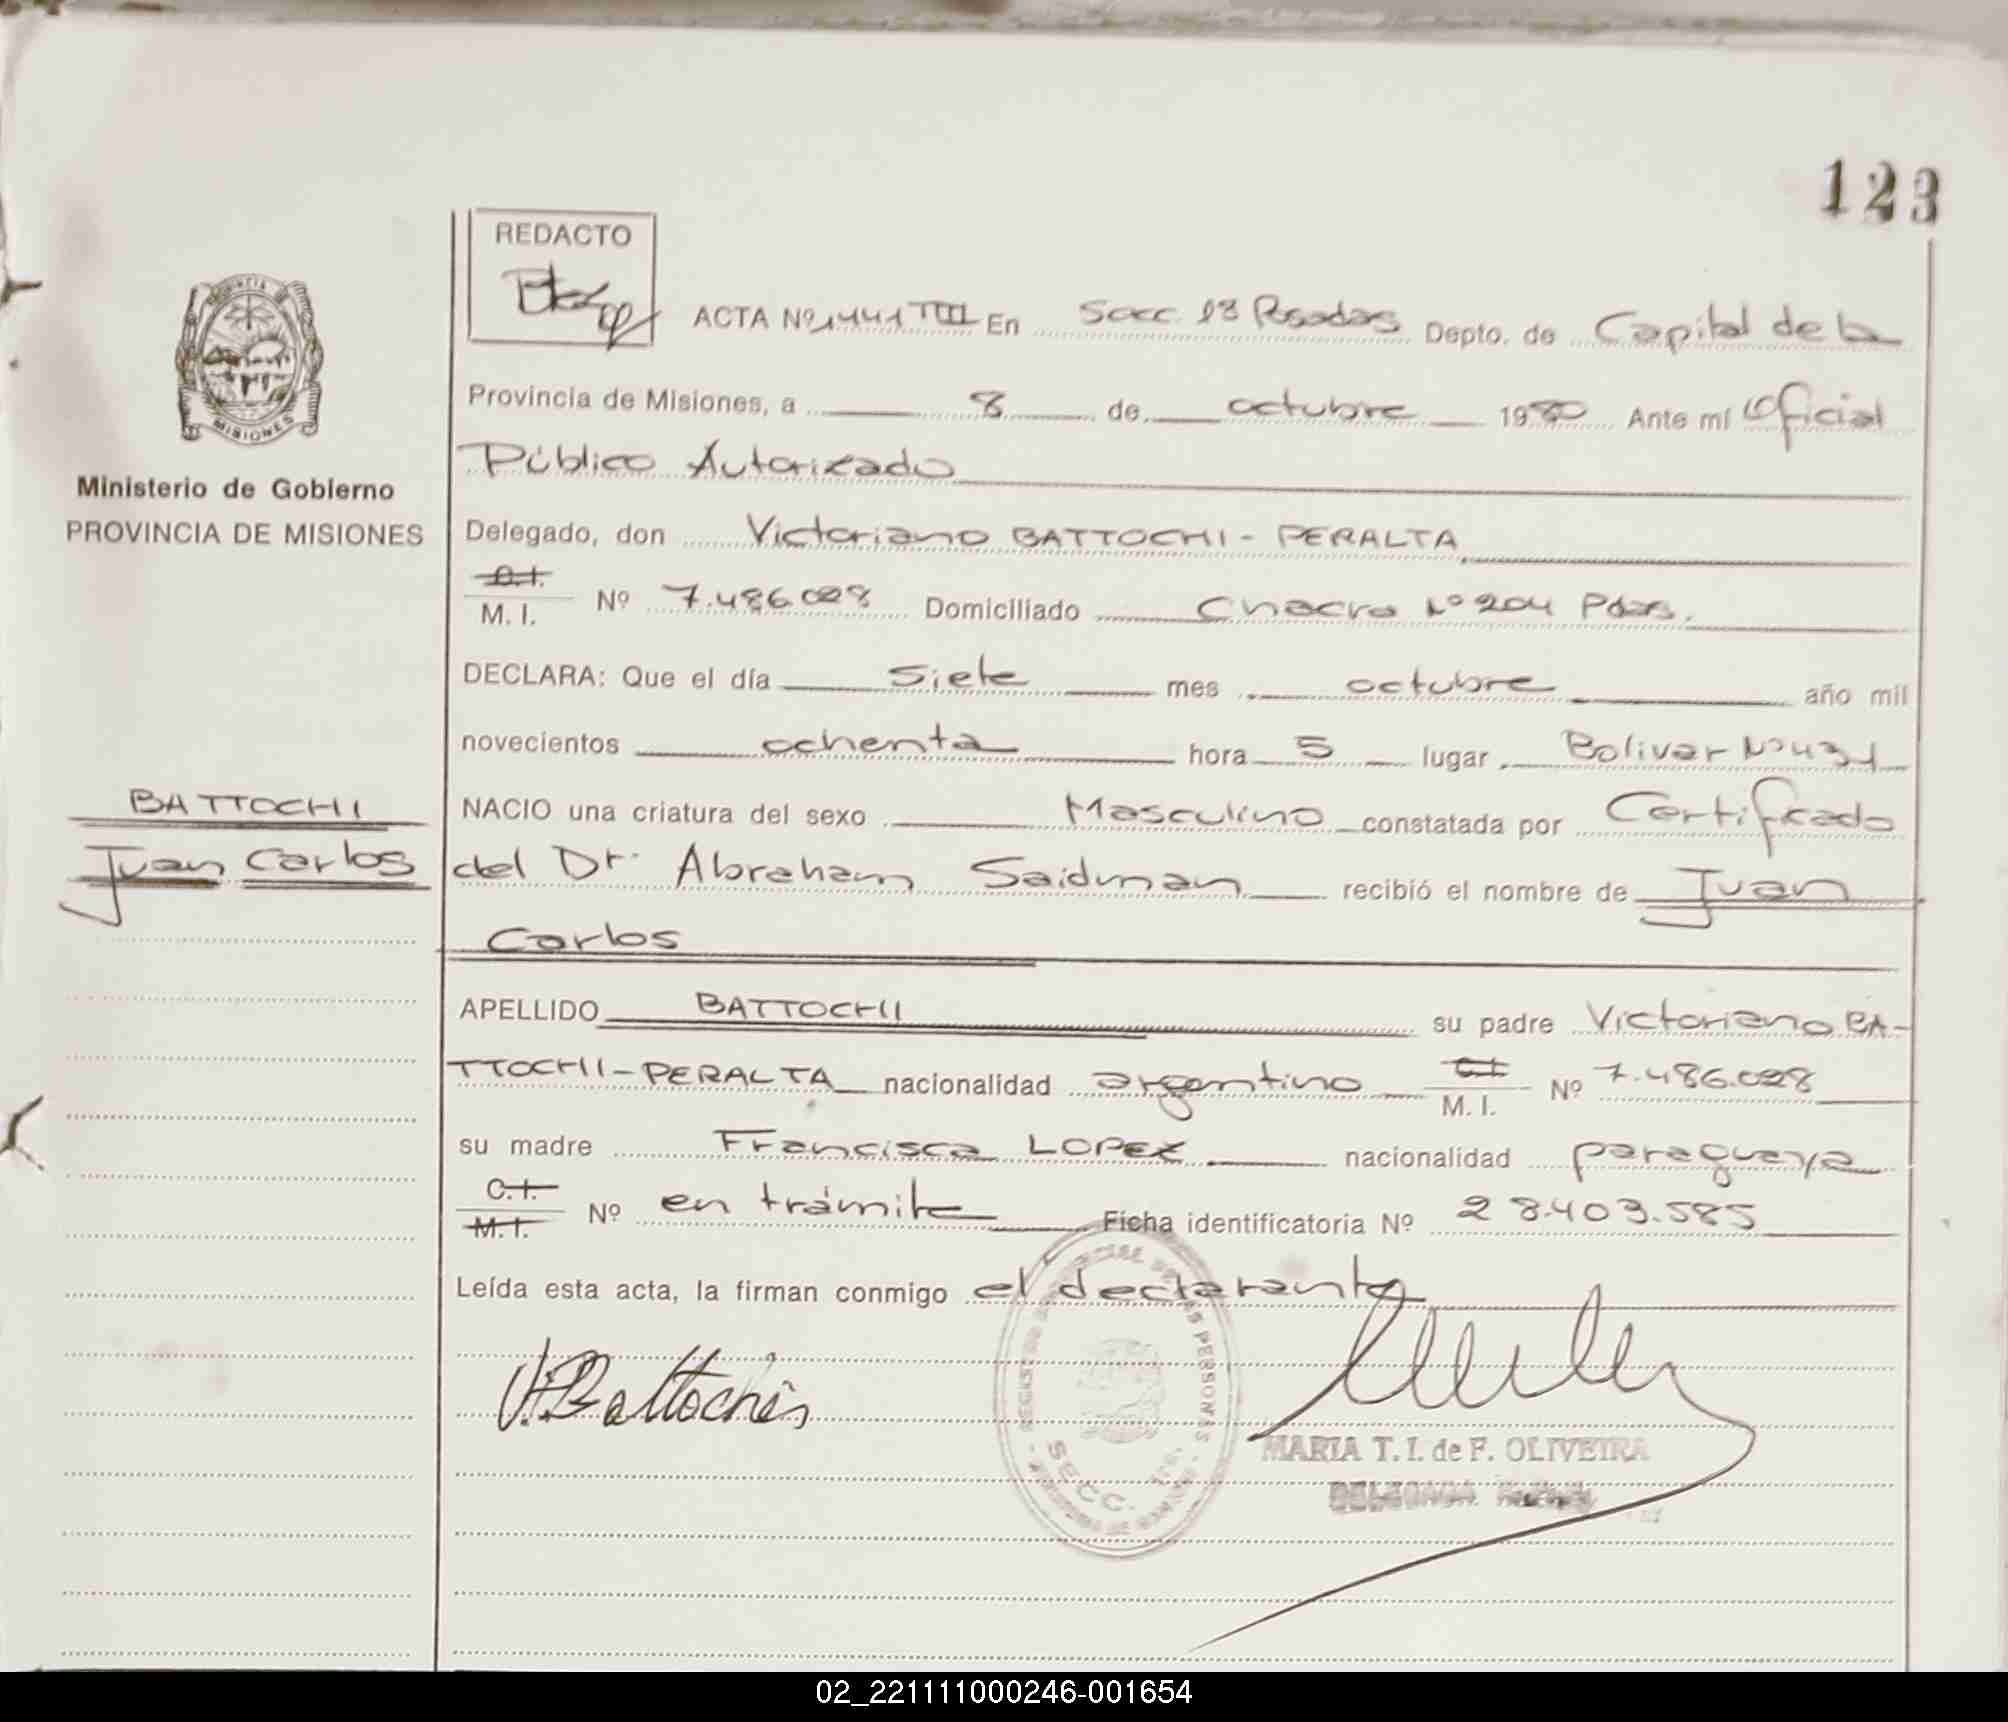 123
REDACTO
ACTA Nº 1441 TIII En Secc. 1ª Posadas Depto. de Capital de la
PROVINCIA DE
MISIONES
Provincia de Misiones, a 8 de octubre 1980 Ante mí Oficial
Público Autorizado
Ministerio de Gobierno
PROVINCIA DE MISIONES
Delegado, don Victoriano BATTOCHI - PERALTA
C.I.
M. I. Nº 7.486.028 Domiciliado Chacra Nº 204 Pdas.
DECLARA: Que el día Siete mes octubre año mil
novecientos ochenta hora 5 lugar Bolivar Nº 431
BATTOCHI
Juan Carlos
NACIO una criatura del sexo Masculino constatada por Certificado
del Dr. Abraham Saidman recibió el nombre de Juan
Carlos
APELLIDO BATTOCHI su padre Victoriano BA-
TTOCHI-PERALTA nacionalidad argentino C.I. M. I. Nº 7.486.028
su madre Francisca LOPEZ nacionalidad paraguaya
C.I.
M.I. Nº en trámite Ficha identificatoria Nº 28.403.585
Leída esta acta, la firman conmigo el declarante
V. Battochi
REGISTRO PROVINCIAL DE LAS PERSONAS
SECC. 1ra.
MARIA T. I. de F. OLIVEIRA
DELEGADA
02_221111000246-001654